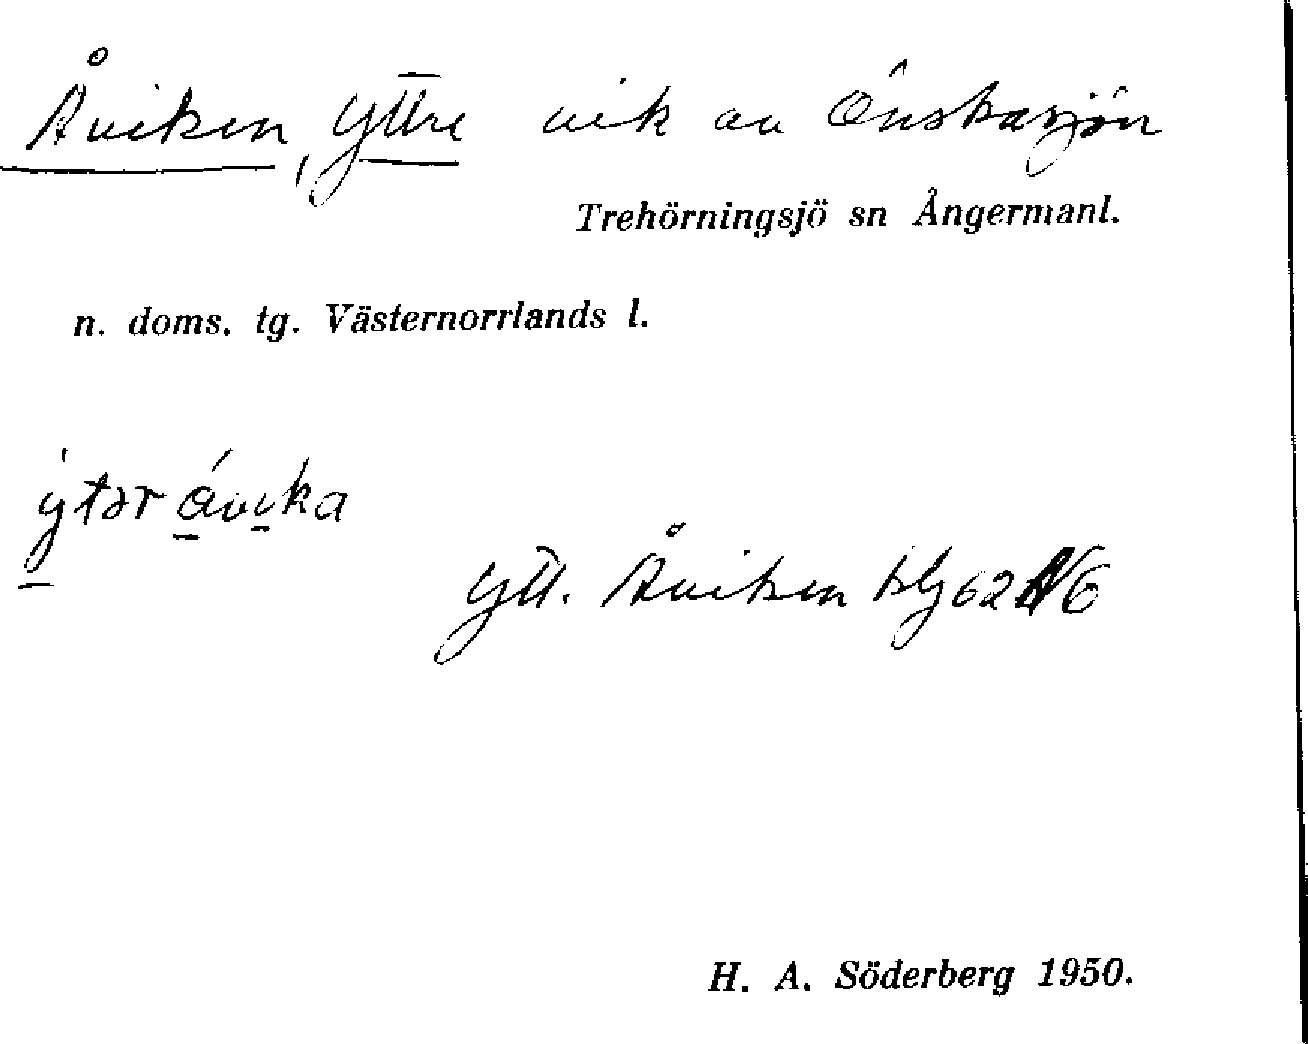 Åviken, Yttre vik av Önskasjön
Trehörningsjö sn Ångermanl.
n. doms. tg. Västernorrlands l.
ýtər ávika
Ytt. Åviken blg 62 N6
H. A. Söderberg 1950.